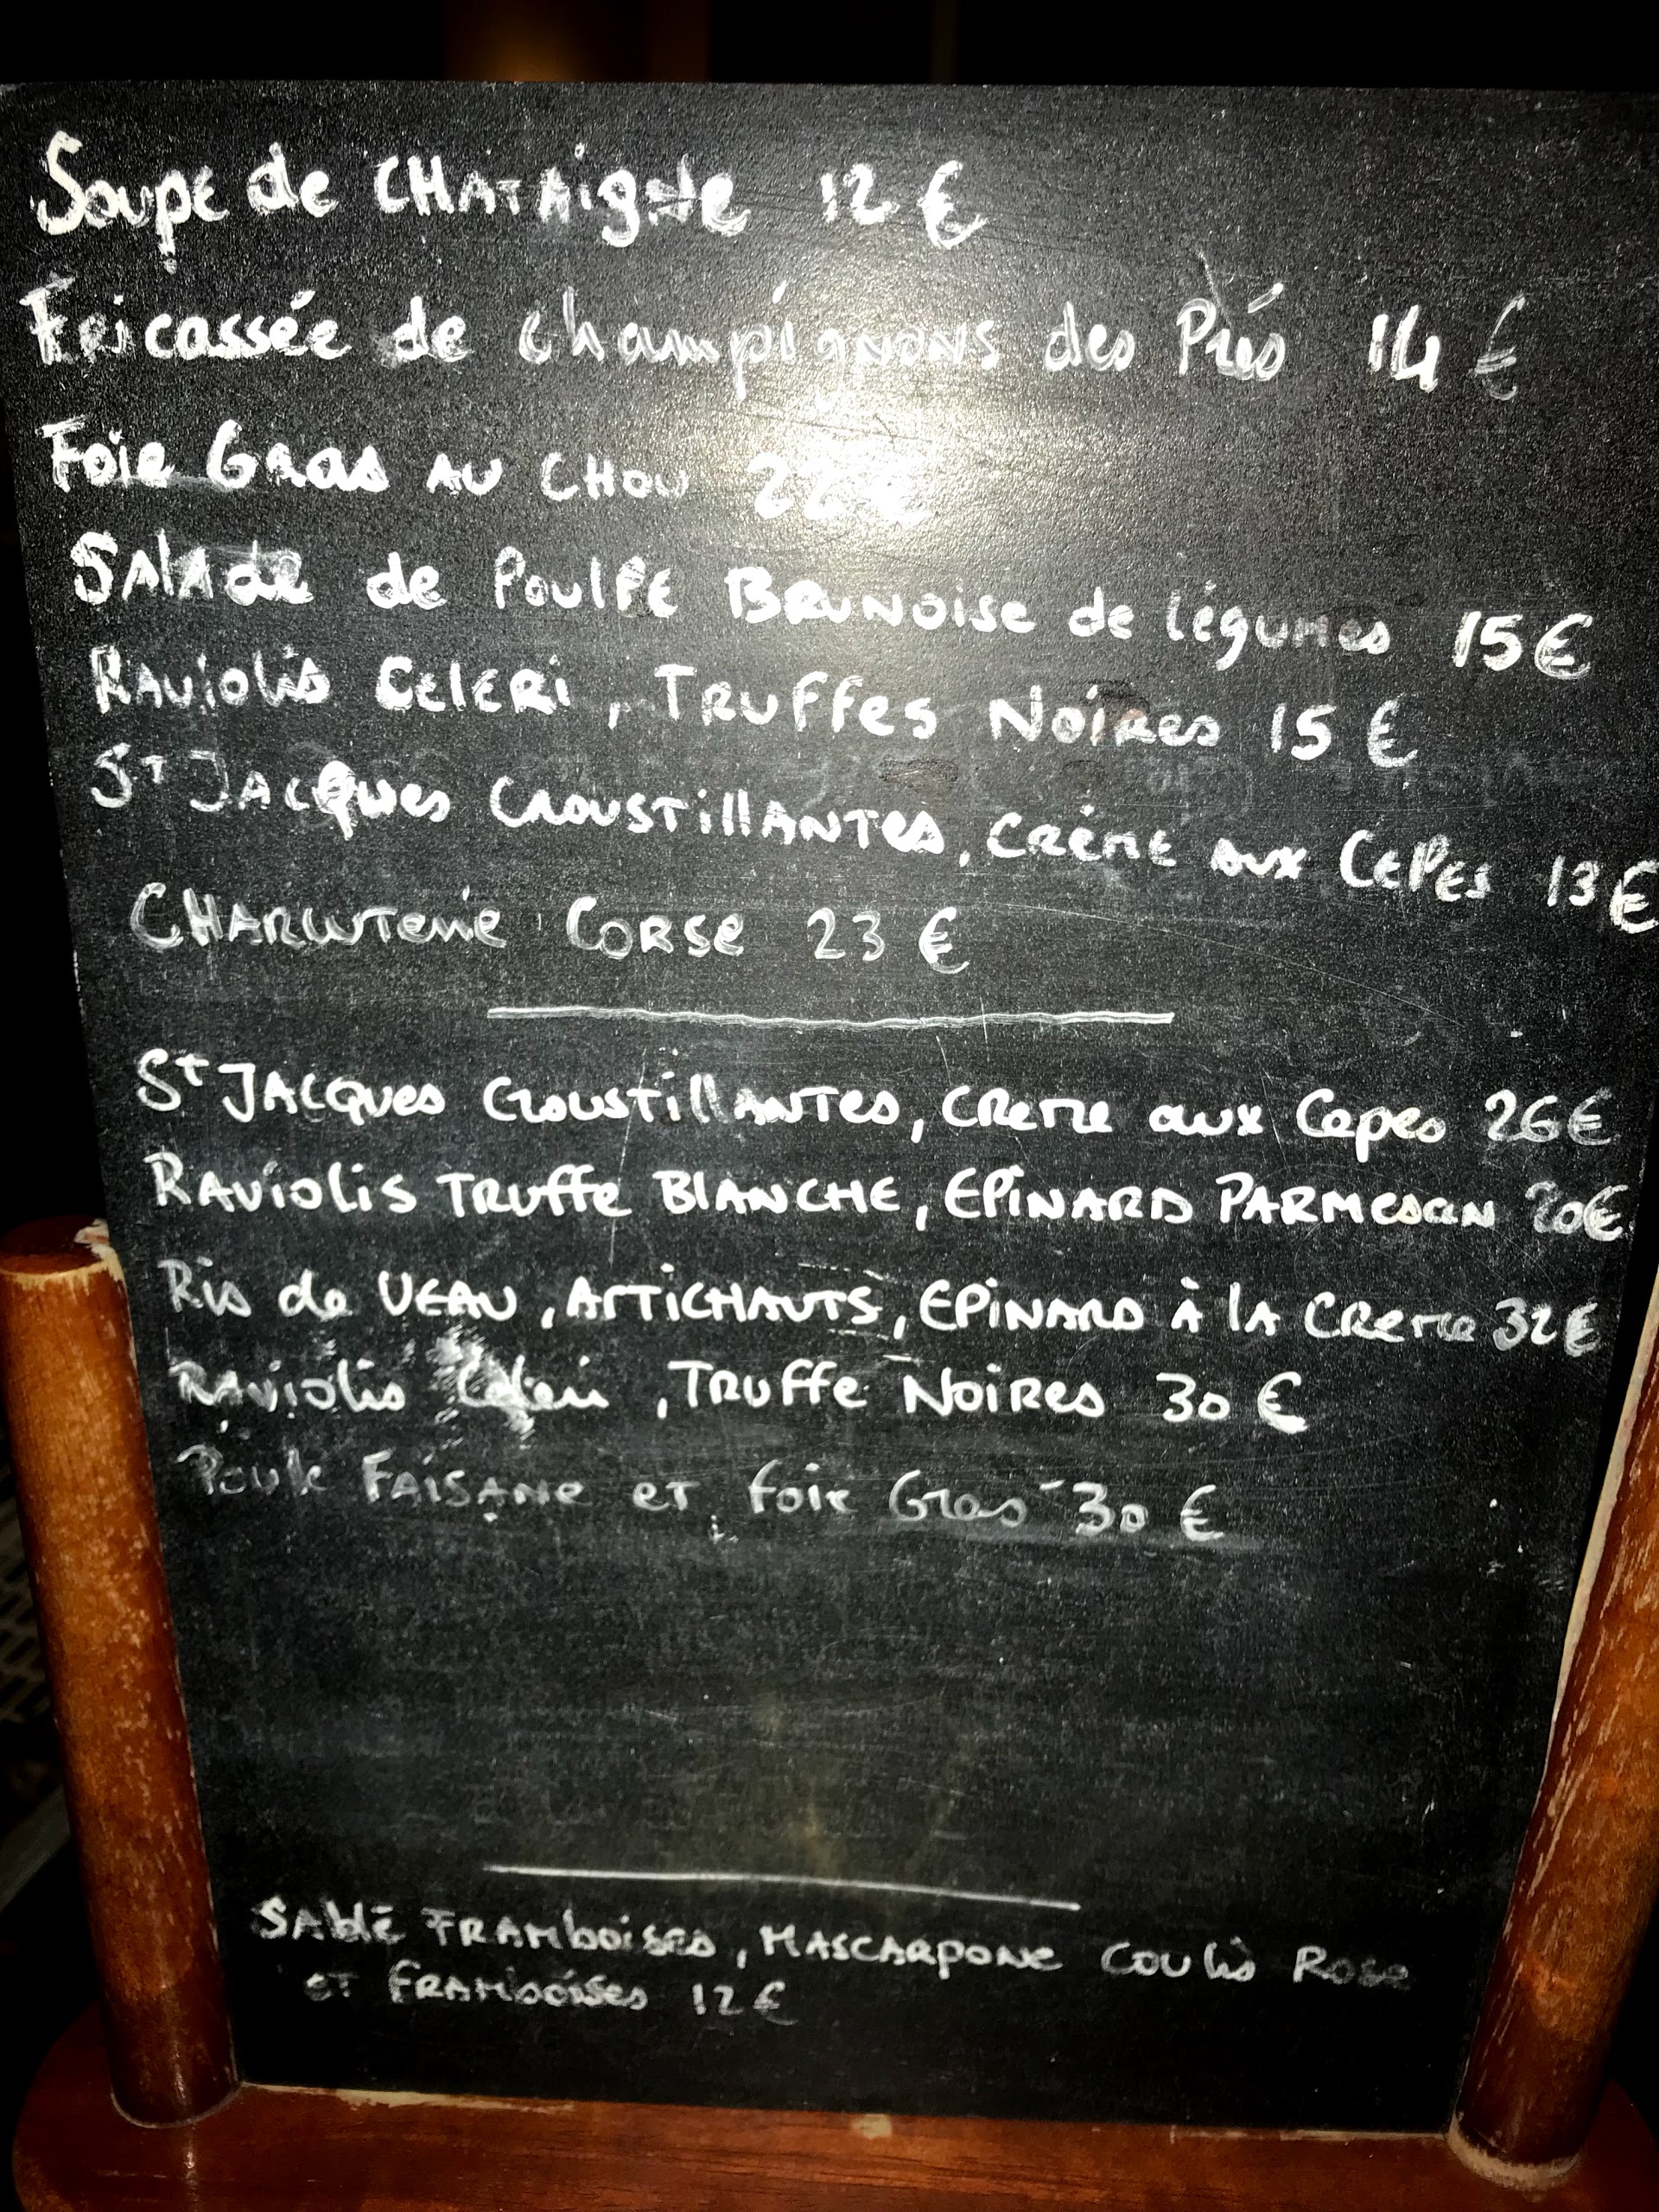 Soupe de CHATAigne 12 €
Fricassée de champignons des Prés 14 €
Foie Gras AU CHOU 22 €
SAlAde de PoulPE BRUNoise de légumes 15€
RAviolis CELERi, TRUffes Noires 15 €
St JACQues CROUSTillANTes, CRème aux CePes 13€
CHARCUTerie CORSe 23 €
St JACQues CROUSTillANTes, CReme aux Cepes 26€
RAViolis TRuffe BlANCHE, EPiNARD PARMesan 20€
Ris de VEAU, ARTiCHAUTS, EPiNARD À lA CReme 32€
RAviolis Celeri, TRuffe NoiRes 30 €
Poule FAiSANe eT foie Gras 30 €
SAblé FRAMboises, MASCARPONe Coulis Rose
eT FRAMboises 12€